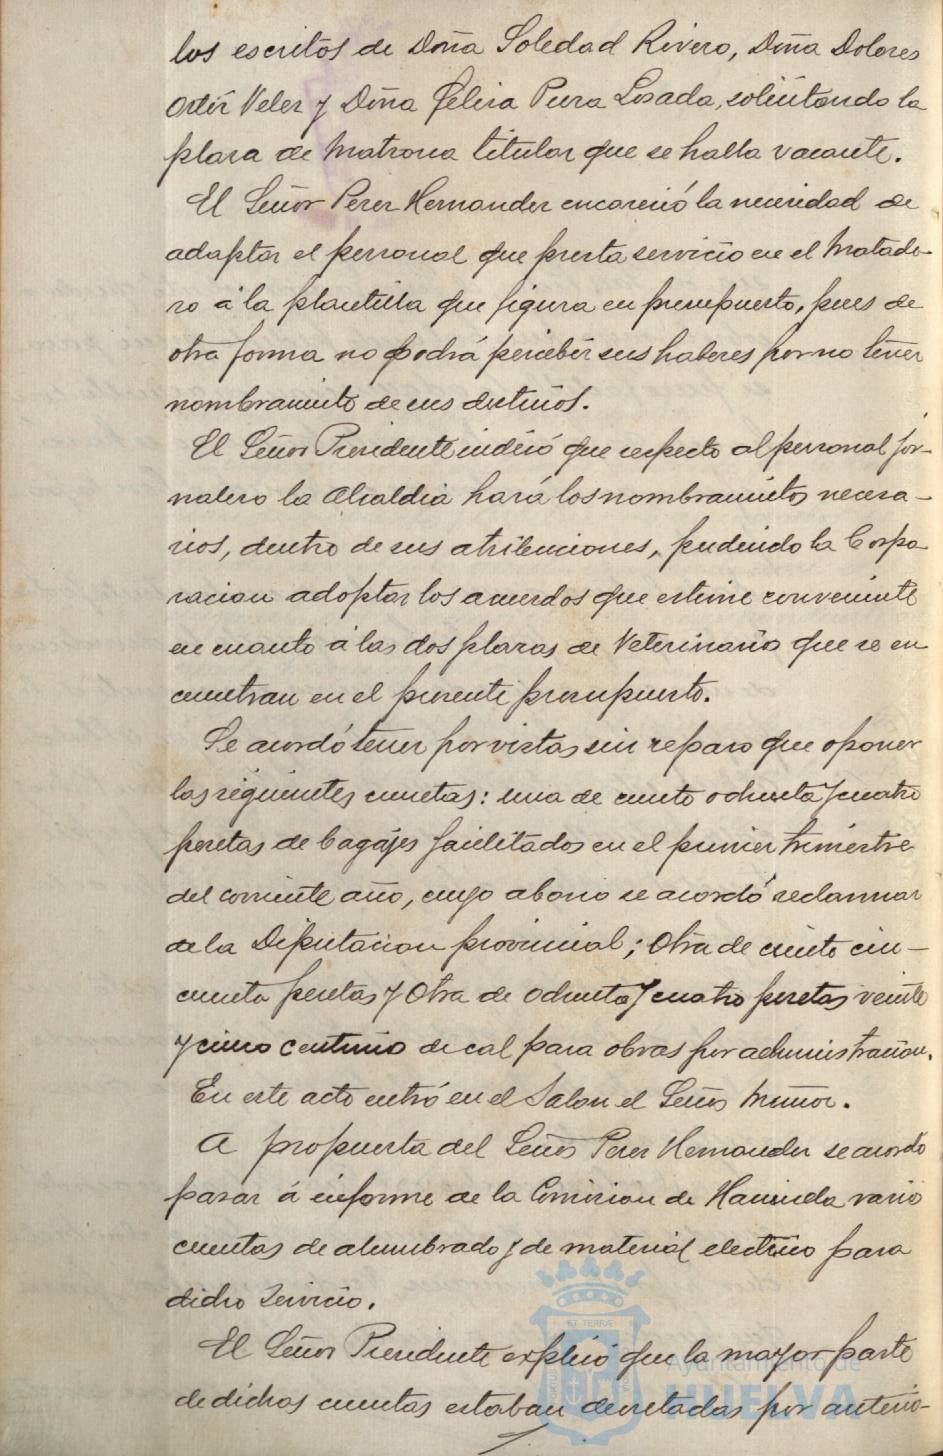 los escritos de Doña Soledad Rivero, Doña Dolores
Ortiz Velez y Doña Felisa Pura Losada, solicitando la
plaza de Matrona titular que se halla vacante.
El Señor Perez Hernandez encareció la necesidad de
adaptar el personal que presta servicio en el Matade-
ro á la plantilla que figura en presupuesto, pues de
otra forma no podrá percebir sus haberes por no tener
nombramiento de sus destinos.
El Señor Presidente indicó que respecto al personal jor-
nalero la Alcaldia hará los nombramientos necesa-
rios, dentro de sus atribuciones, pudiendo la Corpo
racion adoptar los acuerdos que estime conveniente
en cuanto á las dos plazas de Veterinario que se en
cuentran en el presente presupuesto.
Se acordó tener por vistas sin reparo que oponer
las siguientes cuentas: una de ciento ochenta y cuatro
pesetas de bagajes facilitados en el primer trimestre
del corriente año, cuyo abono se acordó reclamar
de la Diputacion provincial; Otra de ciento cin-
cuenta pesetas y Otra de ochenta y cuatro pesetas veinte
y cinco centimo de cal para obras por administracion.
En este acto entró en el Salon el Señor Muñoz.
A propuesta del Señor Perez Hernandez se acordó
pasar á informe de la Comision de Hacienda vario
cuentas de alumbrado y de material electrico para
dicho servicio.
El Señor Presidente explicó que la mayor parte
de dichas cuentas estaban decretadas por anterio-
ET TERRÆ
Ayuntamiento de
HUELVA